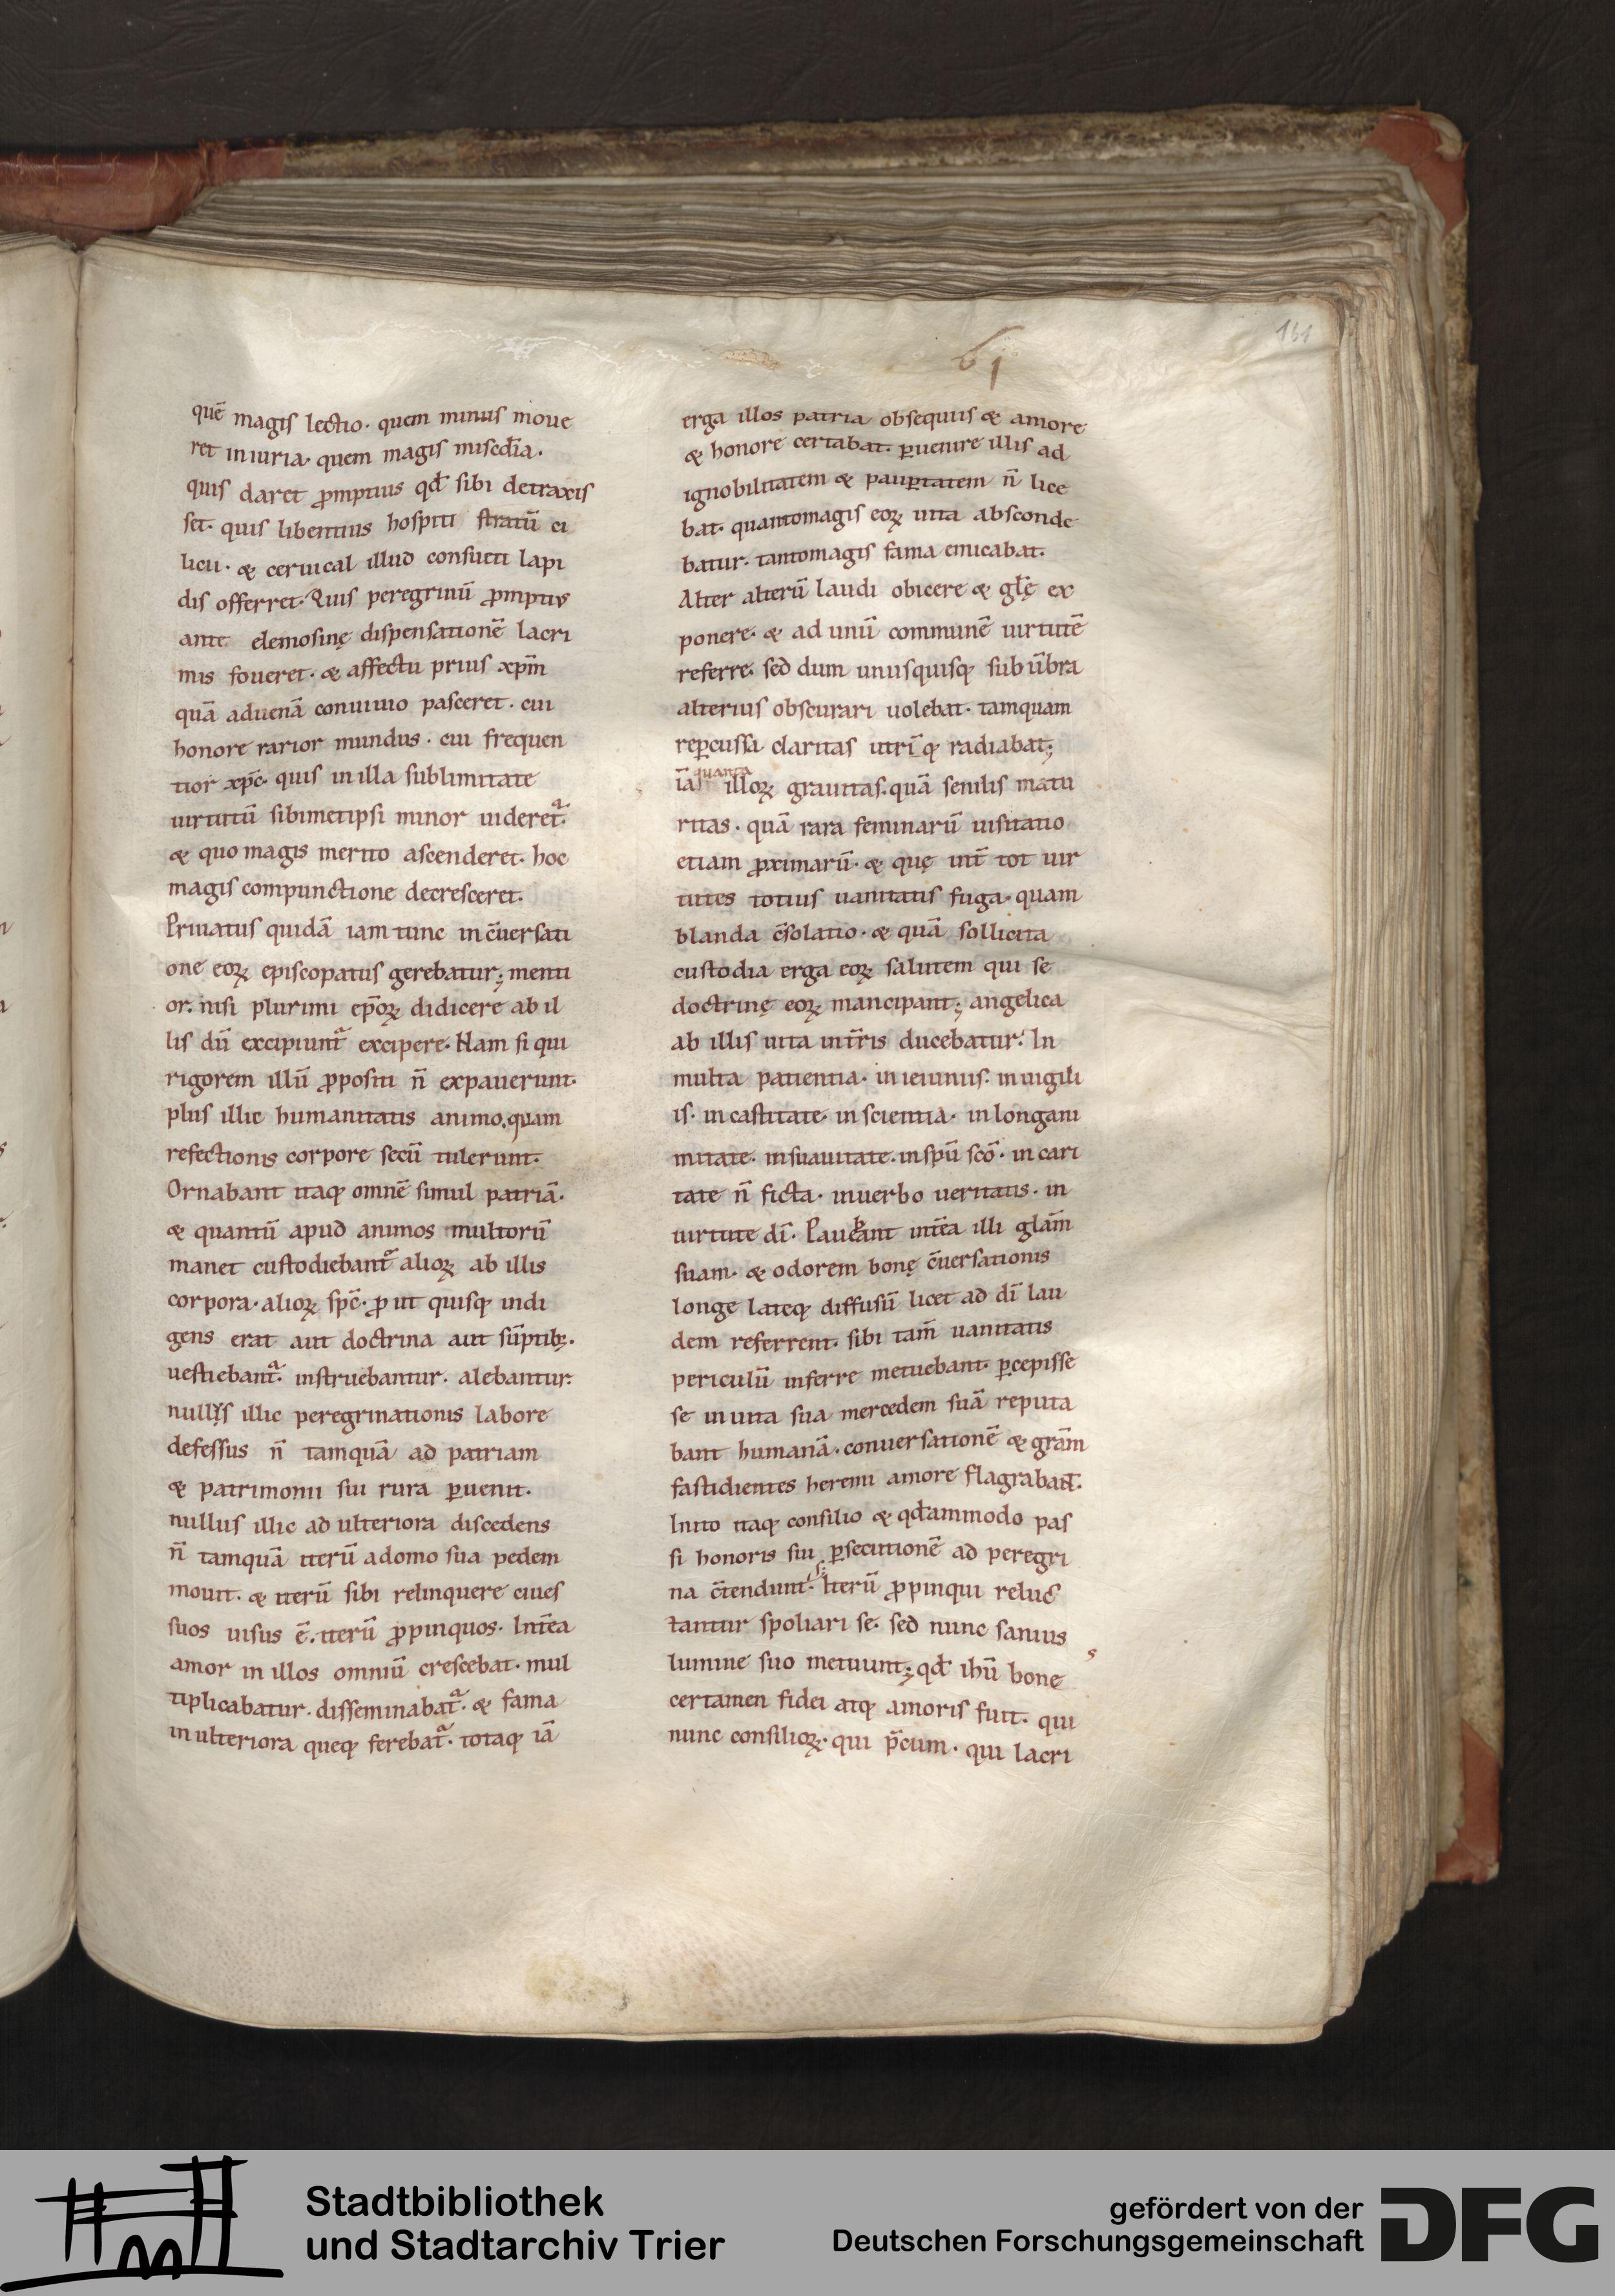 61
161
quē magis lectio. quem minus moue
ret iniuria. quem magis misedīa.
quis daret ꝓmptius qd̄ sibi detraxis
set. quis libentius hospiti stratū ci
licii. & ceruical illud consutti lapi
dis offerret. Quis peregrinū ꝓmptiꝰ
ante elemosinę dispensationē lacri
mis foueret. & affectu prius xp̄m
quā aduenā conuiuio pasceret. cui
honore rarior mundus. cui frequen
tior xp̄c. quis in illa sublimitate
uirtutū sibimetipsi minor uideret᷑.
& quo magis merito ascenderet. hoc
magis compunctione decresceret.
Priuatus quidā iam tunc in c̄uersati
one eoꝝ episcopatus gerebatur; menti
or. nisi plurimi ep̄oꝝ didicere ab il
lis dū excipiunt᷑ excipere. Nam si qui
rigorem illū ꝓpositi n̄ expauerunt.
plus illic humanitatis animo. quam
refectionis corpore secū tulerunt.
Ornabant itaq; omnē simul patriā.
& quantū apud animos multorū
manet custodiebant᷑ alioꝝ ab illis
corpora. alioꝝ sp̄c. ꝓ ut quisq; indi
gens erat aut doctrina aut sūptib;.
uestiebant᷑. instruebantur. alebantur.
nullus illic peregrinationis labore
defessus n̄ tamquā ad patriam
& patrimonii sui rura ꝑuenit.
nullus illic ad ulteriora discedens
n̄ tamquā iterū adomo sua pedem
mouit. & iterū sibi relinquere ciues
suos uisus ē. iterū ꝓpinquos. Int̄ea
amor in illos omniū crescebat. mul
tiplicabatur. disseminabat᷑. & fama
in ulteriora queq; ferebat᷑. totaq; iā
erga illos patria obsequiis & amore
& honore certabat. ꝑuenire illis ad
ignobilitatem & pauꝑtatem n̄ lice
bat. quantomagis eoꝝ uita absconde
batur. tantomagis fama emicabat.
Alter alterū laudi obicere & gl̄ę ex
ponere. & ad unū communē uirtutē
referre. sed dum unusquisq; sub ūbra
alterius obscurari uolebat. tamquam
reꝑcussa claritas utrīq; radiabat;
iā quanta illoꝝ grauitas. quā senilis matu
ritas. quā rara feminarū uisitatio
etiam ꝓximarū. & quę int̄ tot uir
tutes totius uanitatis fuga. quam
blanda c̄solatio. & quā sollicita
custodia erga eoꝝ salutem qui se
doctrinę eoꝝ mancipant; angelica
ab illis uita int̄ris ducebatur. In
multa patientia. in ieiuniis. in uigili
is. in castitate. in scientia. in longani
mitate. in suauitate. in sp̄u sc̄o. in cari
tate n̄ ficta. in uerbo ueritatis. in
uirtute dī. Pauebant int̄ea illi glām
suam. & odorem bonę c̄uersationis
longe lateq; diffusū licet ad dī lau
dem referrent. sibi tam̄ uanitatis
periculū inferre metuebant. ꝑcepisse
se in uita sua mercedem suā reputa
bant humanā. conuersationē & grām
fastidientes heremi amore flagrabant.
Inito itaq; consilio & qd̄ammodo pas
si honoris sui ꝑsecutionē ad peregri
na c̄tendunt. Iterū ꝓpinqui reluc
tantur spoliari se. sed nunc sanius
lumine suo metuunt; qd̄ ihū bone
certamen fidei atq; amoris fuit. qui
nunc consilioꝝ. qui p̄cum. qui lacri
Stadtbibliothek
und Stadtarchiv Trier
gefördert von der
Deutschen Forschungsgemeinschaft
DFG